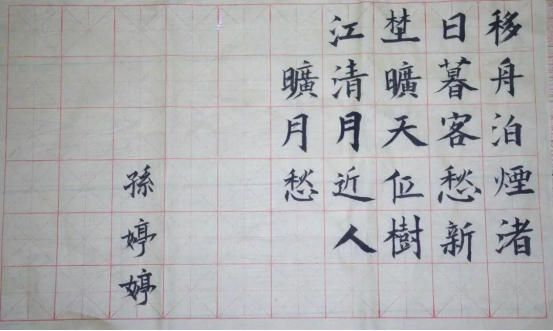 移舟泊煙渚
日暮客愁新
埜曠天低樹
江清月近人
曠月愁
孫婷婷